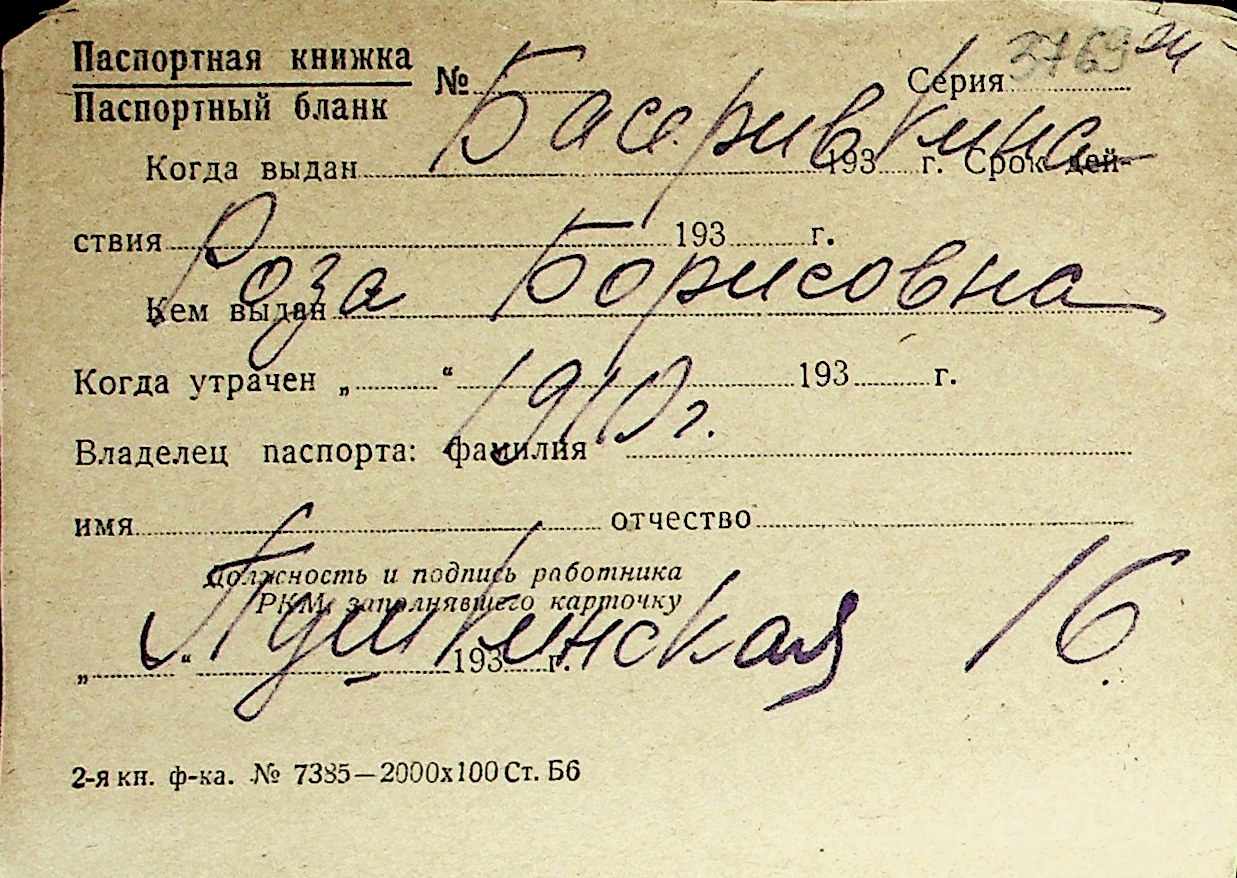 Паспортная книжка
Паспортный бланк
№ Серия 3769
Басривкина
Когда выдан 193 г. Срок дей-
ствия 193 г.
Роза Борисовна
Кем выдан
Когда утрачен „ “ 193 г.
1910 г.
Владелец паспорта: фамилия
имя отчество
Должность и подпись работника
РКМ, заполнявшего карточку
Пушкинская 16
„ “ 193 г.
2-я кн. ф-ка. № 7385—2000х100 Ст. Б6